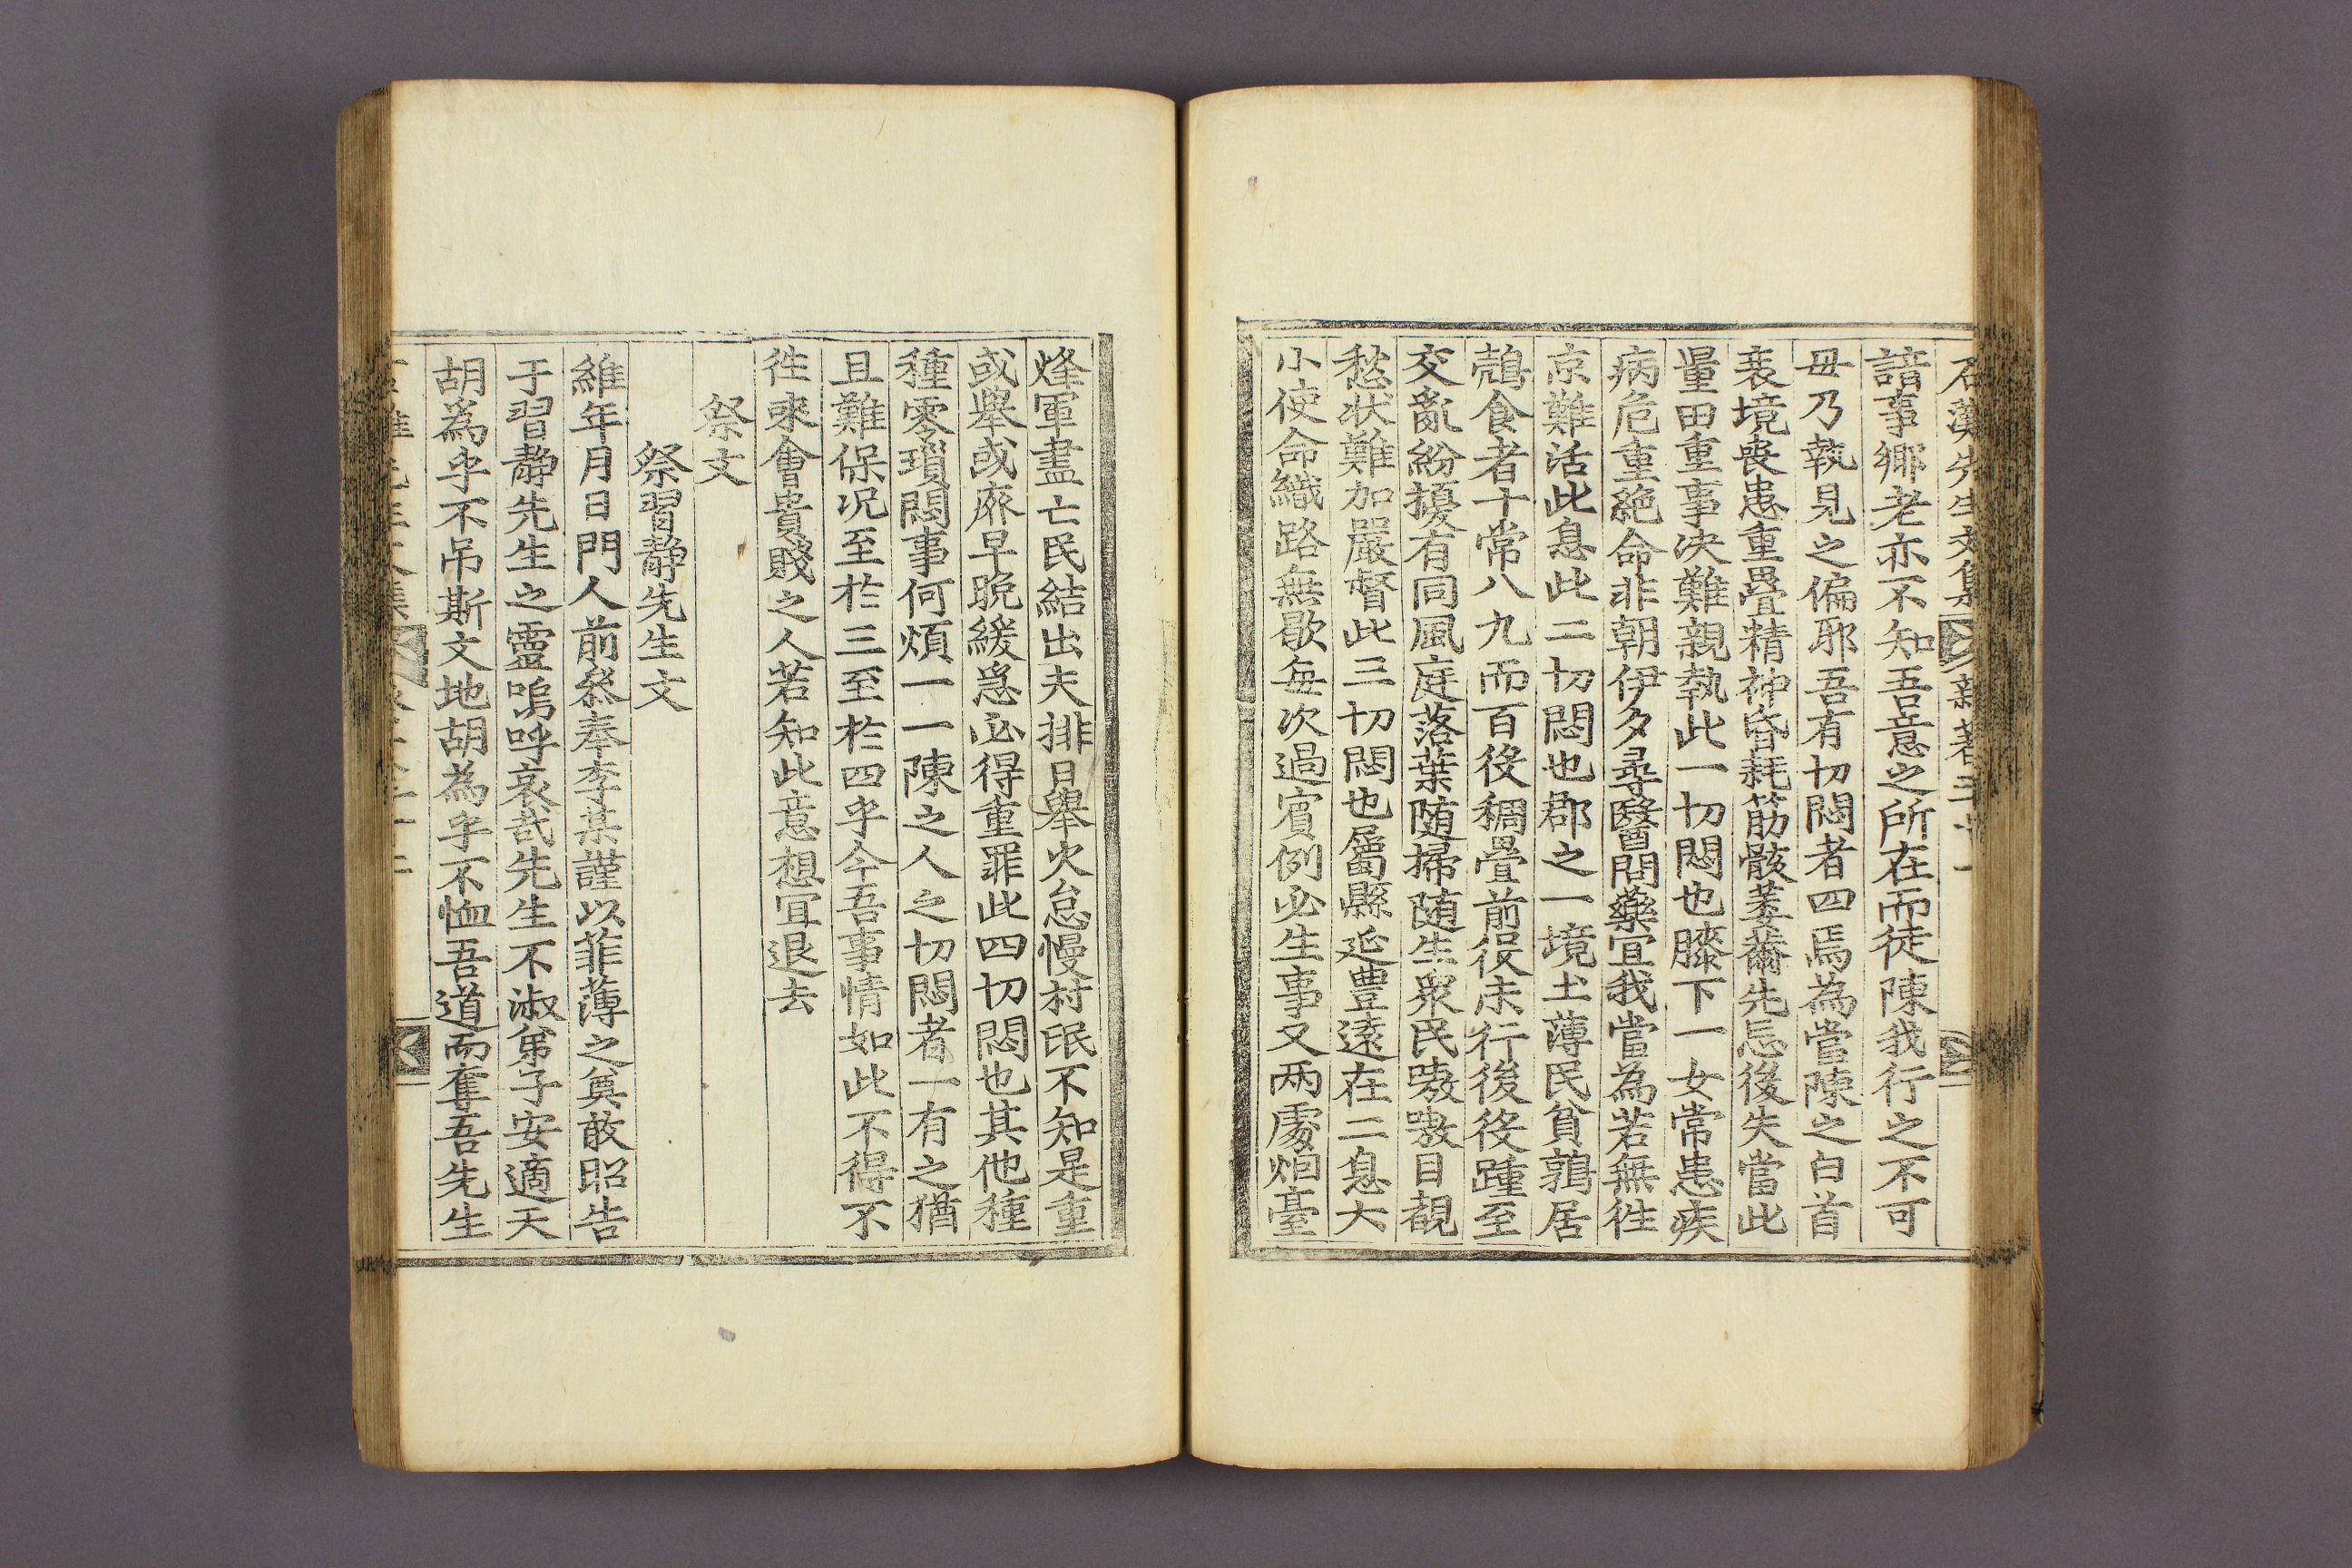 諳事鄉老亦不知吾意之所在而徒陳我行之不可
毋乃執見之偏耶吾有切悶者四焉為當陳之白首
衰境喪患重疊精神昏耗筋骸萎薾先忘後失當此
量田重事决難親執此一切悶也膝下一女常患疾
病危重絕命非朝伊夕尋醫問藥宜我當為若無徃
京難活此息此二切悶也郡之一境土薄民貧鶉居
鷇食者十常八九而百役稠疊前役未行後役踵至
交亂紛擾有同風庭落葉随掃随生衆民嗷嗷目覩
愁状難加嚴督此三切悶也屬縣延豊遠在二息大
小使命織路無歇每次過賓例必生事又兩處烟臺
烽軍盡亡民結出夫排日舉火怠慢村氓不知是重
或舉或廃早晚緩急必得重罪此四切悶也其他種
種零瑣悶事何煩一一陳之人之切悶者一有之猶
且難保况至於三至於四乎今吾事情如此不得不
徃来會貴賤之人若知此意想冝退去
祭文
祭習靜先生文
維年月日門人前叅奉李某謹以菲薄之奠敢昭告
于習靜先生之靈嗚呼哀哉先生不淑弟子安適天
胡為乎不吊斯文地胡為乎不恤吾道而奪吾先生